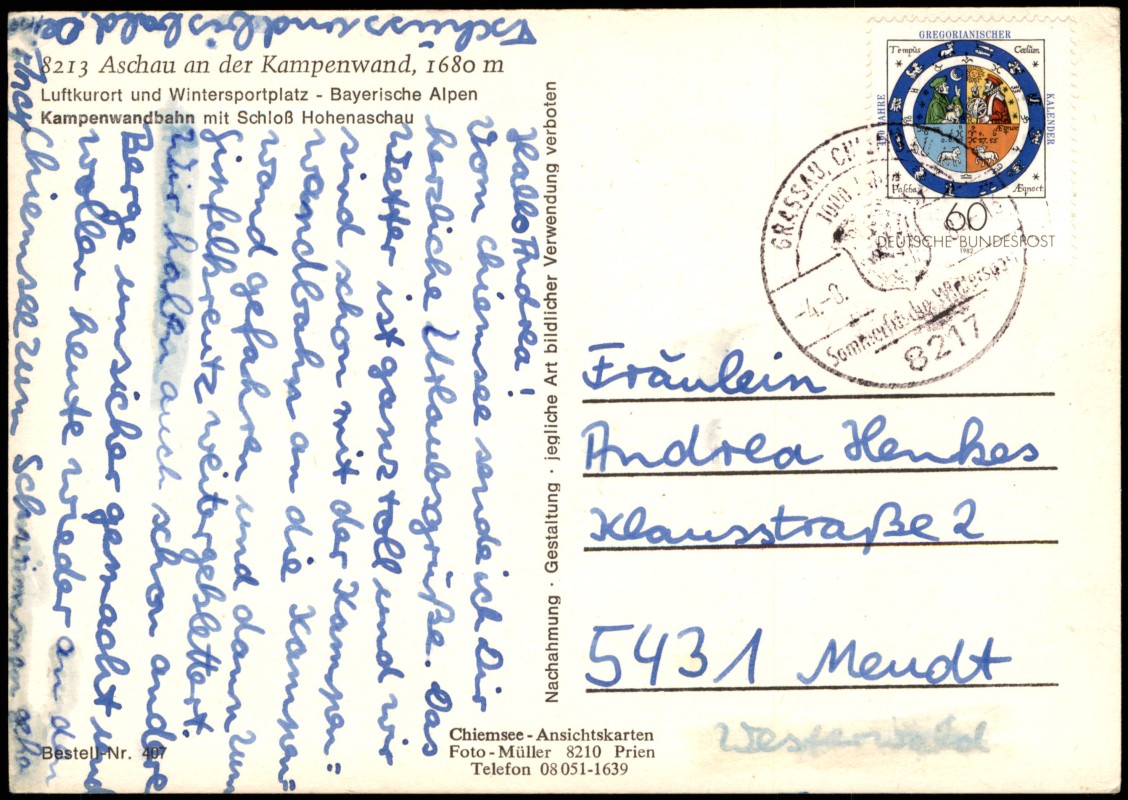 8213 Aschau an der Kampenwand, 1680 m
Luftkurort und Wintersportplatz - Bayerische Alpen
Kampenwandbahn mit Schloß Hohenaschau
Hallo Andrea!
Vom Chiemsee sende ich Dir
herzliche Urlaubsgrüße. Das
Wetter ist ganz toll und wir
sind schon mit der Kampen-
wandbahn an die Kampen-
wand gefahren und dann zum
Gipfelkreutz weitergeklettert.
Wir haben auch schon andere
Berge unsicher gemacht und
wollen heute wieder an den
Chiemsee zum Schwimmen gehn
Tschüss und bis bald, De
Nachahmung · Gestaltung · jegliche Art bildlicher Verwendung verboten
Bestell-Nr. 407
Chiemsee-Ansichtskarten
Foto-Müller 8210 Prien
Telefon 08051-1639
GREGORIANISCHER
KALENDER
JAHRE
Tempus
Cœlum
Pascha
Æqnoct
60
DEUTSCHE BUNDESPOST
1982
GRASSAU, CHI
-4.-8.
8217
Fräulein
Andrea Henkes
Klausstraße 2
5431 Meudt
Westerwald